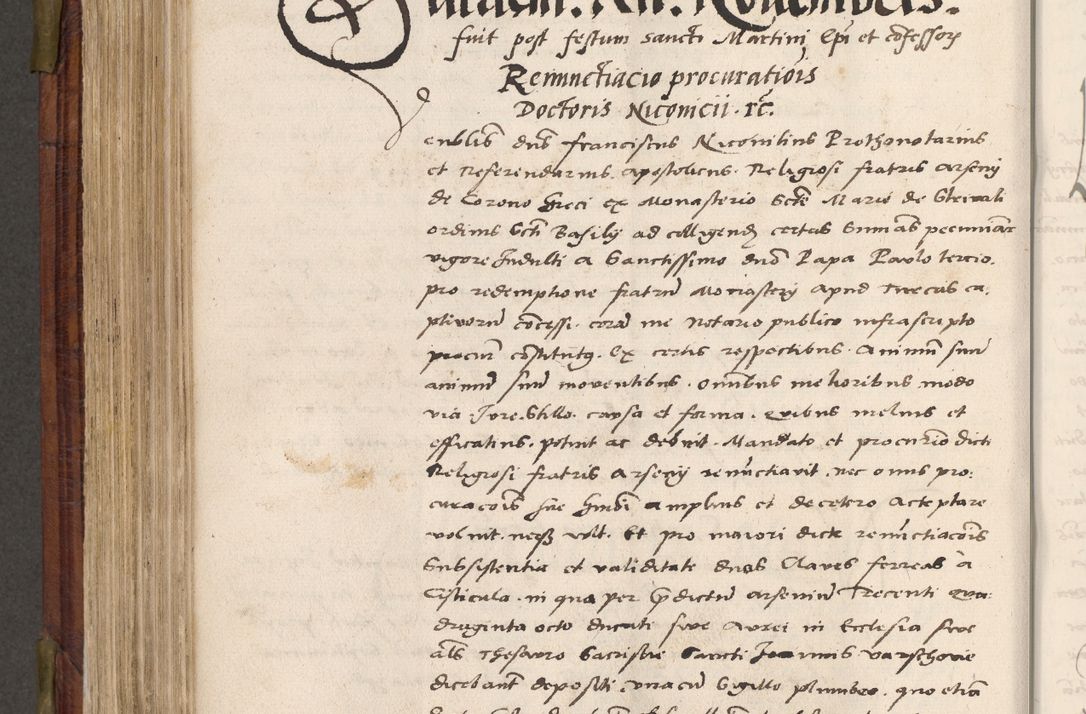 fuit post festum sancti Martini Epi et cõfessoris
Renunctiacio procurationis
Doctoris Niconicii. rc̃.
enblis dns franciscus Niconitius Prothonotarius
et Referendarius. apostolicus. Religiosi fratris Arsenij
de Corono Greci ex Monasterio Scte Marie de
ordinis Scti Basilij ad colligendas certas Summas pecuniar
vigore Indulti a Sanctissimo dno Papa Paulo tercio.
pro redemptione fratrum Monasterij apud Turcas ca,
ptivorum concessi. coram me Notario publico infrascripto
procur constitutus. Ex certis respectibus. Animum suum
animum suum moventibus. omnibus melioribus modo
via. Jure. Stillo. causa et forma. quibus melius et
efficatius. potuit ac debuit. Mandato et procurio dicti
Religiosi fratris Arsenij renunctiavit. nec onus pro:
curacois sue amplius et decetero Acceptare
voluit. neqz vult. Et pro maiori dicte renunctiacois
Subsistentia et validitate duas Claves ferreas à
Cisticula. in qua per predictum arsenium Trecenti qua:
draginta octo ducati sive Aurei in Ecclesia sive
als Thesauro Sacristie Sancti Joannis Varschovie
dicebant depositi. unacum Sigillo plumbeo. quo etiam